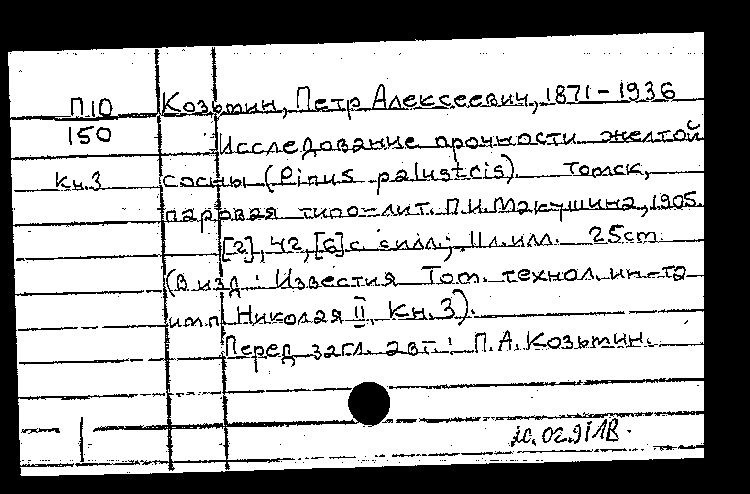 П10 Козьмин, Петр Алексеевич, 1871-1936
150 Исследование прочности желтой
Кн.3 сосны (Pinus palustris). Томск,
паровая типо-лит. П.И. Макушина, 1905.
[2], 42, [6] с. с илл.; 11 л. илл. 25cm.
(В изд.: Известия Том. технол. ин-та
имп. Николая II, Кн. 3).
Перед загл. авт.: П.А. Козьмин.
02.91